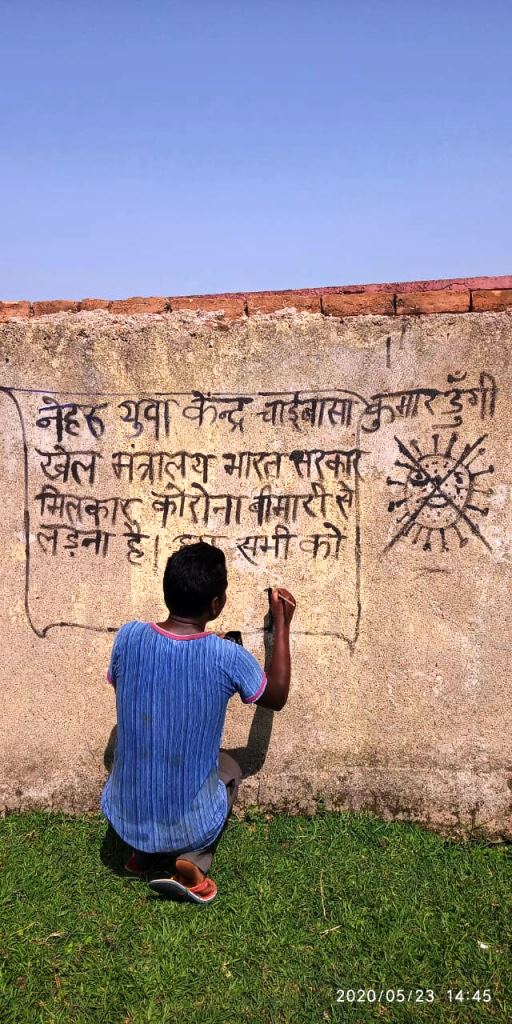 नेहरू युवा केन्द्र चाईबासा कुमार डुँगी
खेल मंत्रालय भारत सरकार
मिलकार कोरोना बीमारी से
लड़ना है। सभी को
2020/05/23 14:45